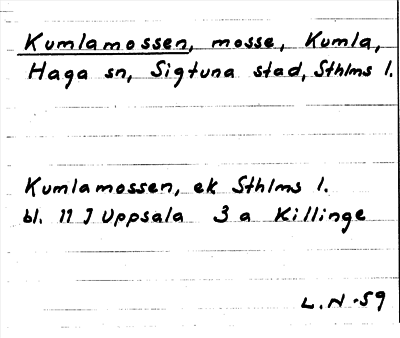 Kumlamossen, mosse, Kumla,
Haga sn, Sigtuna stad, Sthlms l.
Kumlamossen, ek Sthlms l.
bl. 11 J Uppsala 3 a Killinge
L.N-59